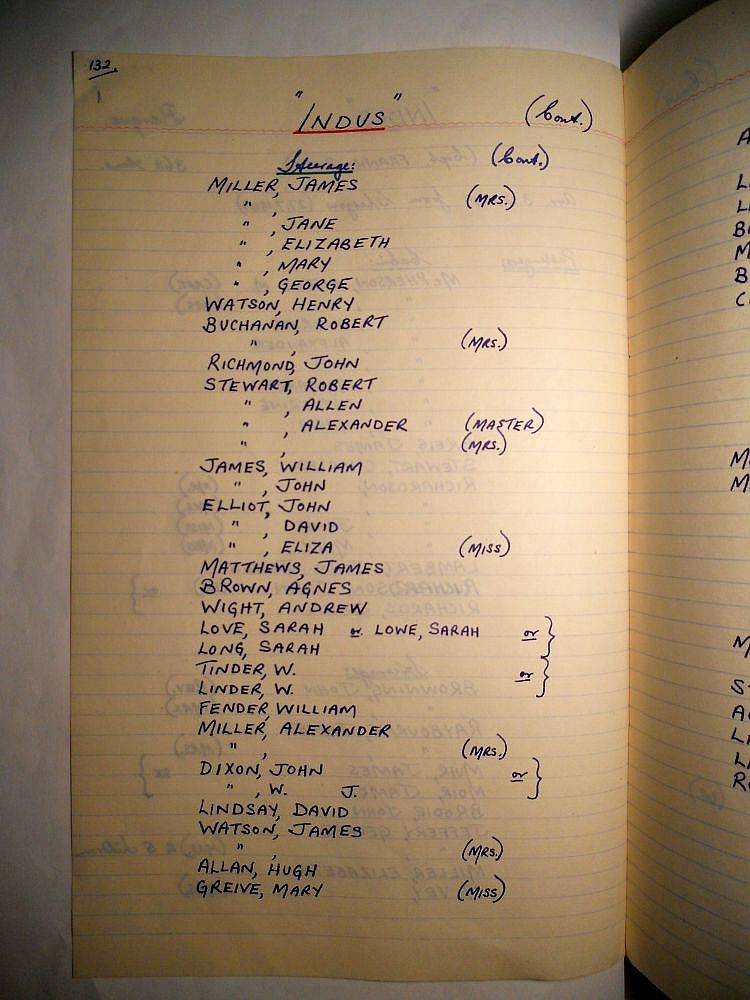 132.
"INDUS" (Cont.)
Steerage: (Cont.)
MILLER, JAMES
" , (MRS.)
" , JANE
" , ELIZABETH
" , MARY
" , GEORGE
WATSON, HENRY
BUCHANAN, ROBERT
" , (MRS.)
RICHMOND, JOHN
STEWART, ROBERT
" , ALLEN
" , ALEXANDER (MASTER)
" , (MRS.)
JAMES, WILLIAM
" , JOHN
ELLIOT, JOHN
" , DAVID
" , ELIZA (MISS)
MATTHEWS, JAMES
BROWN, AGNES
WIGHT, ANDREW
LOVE, SARAH or LOWE, SARAH or }
LONG, SARAH
TINDER, W. or }
LINDER, W.
FENDER WILLIAM
MILLER, ALEXANDER
" , (MRS.)
DIXON, JOHN or }
" , W. J.
LINDSAY, DAVID
WATSON, JAMES
" , (MRS.)
ALLAN, HUGH
GREIVE, MARY (MISS)